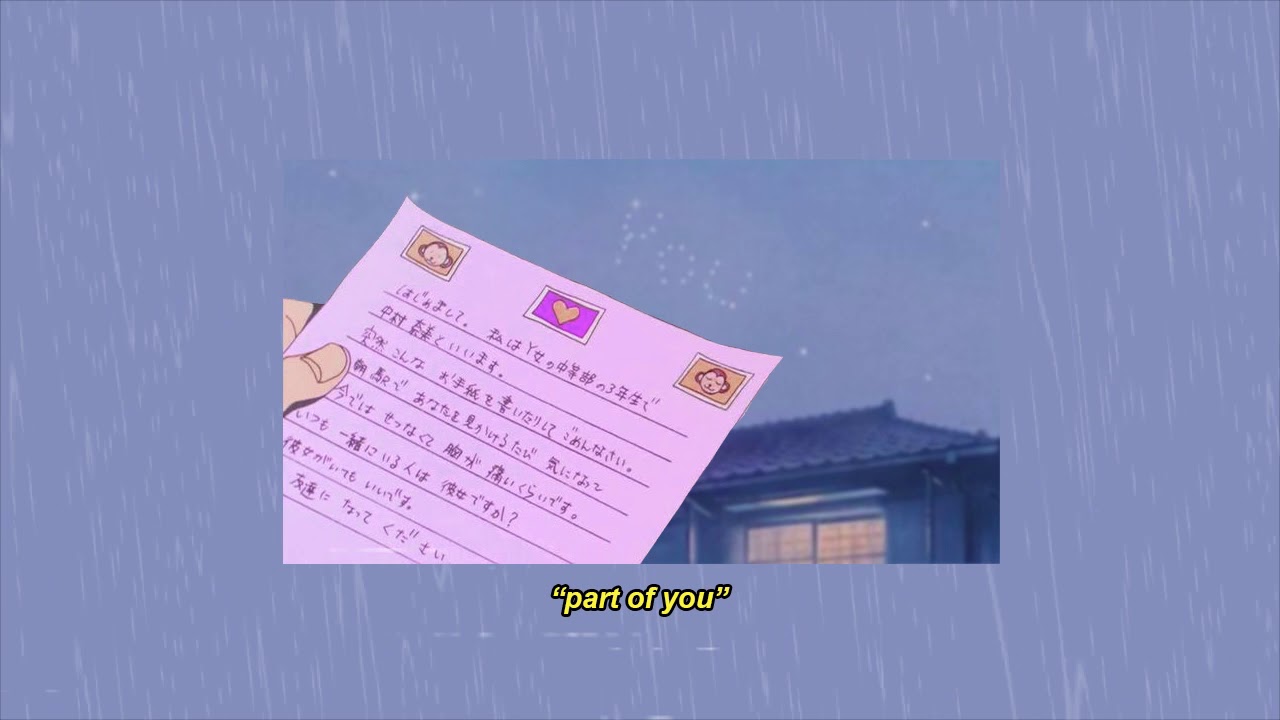 はじめまして。 私はY女の中等部の3年生で
中村奈美といいます。
突然こんな お手紙を書いたりして ごめんなさい。
朝 駅で あなたを見かけるたび 気になって
今では せつなくて 胸が 痛いくらいです。
いつも 一緒にいる人は 彼女ですか?
彼女がいても いいです。
友達に なって ください
“part of you”